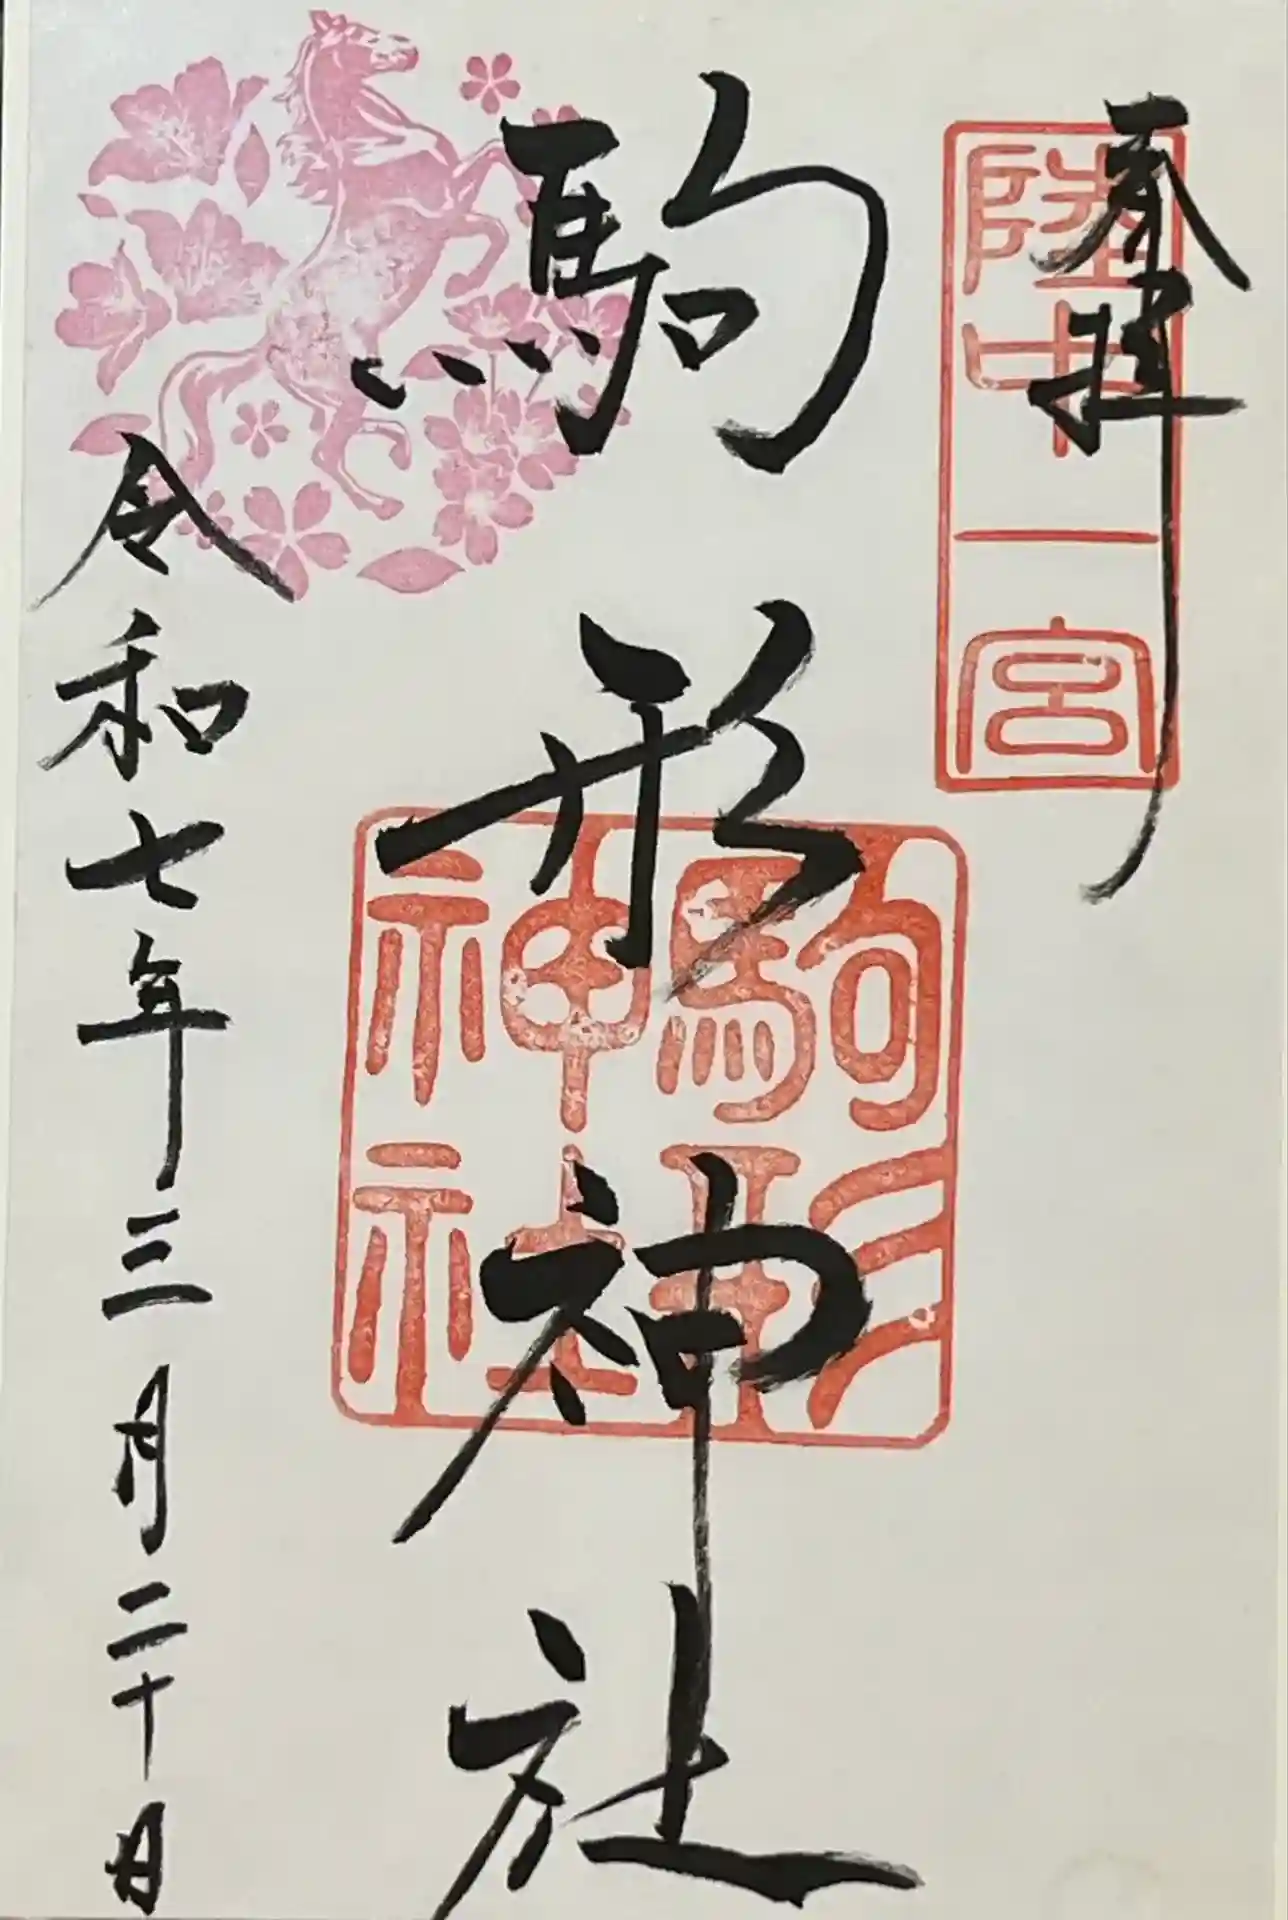 奉拝
陸中一宮
駒形神社
駒形
神社
令和七年三月二十日